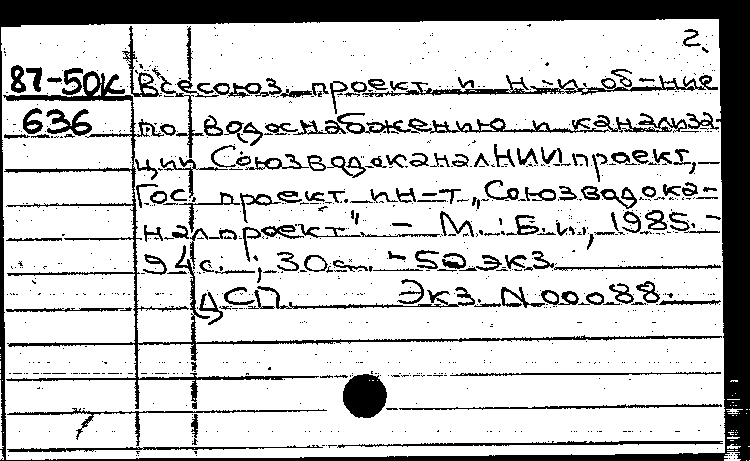 2.
87-50К Всесоюз. проект. и н.-и. об-ние
636 по водоснабжению и канализа-
ции Союзводоканал НИИ проект,
Гос. проект. ин-т „Союзводока-
налпроект". - М. : Б.и., 1985. -
94 с. ; 30 см. - 50 экз.
ДСП. Экз. N 00088.